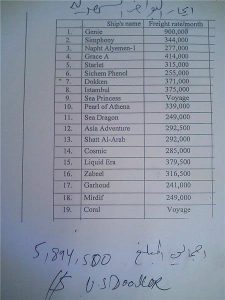 Ship's name Freight rate/month
1. Genie 900,000
2. Simphony 344,000
3. Napht Alyemen-1 277,000
4. Grace A 414,000
5. Starlet 315,000
6. Sichem Phenol 255,000
7. Dokken 371,000
8. Istanbul 375,000
9. Sea Princess Voyage
10. Pearl of Athena 339,000
11. Sea Dragon 249,000
12. Asia Adventure 292,500
13. Shatt Al-Arab 292,500
14. Cosmic 285,000
15. Liquid Era 379,500
16. Zabeel 316,500
17. Garhoud 241,000
18. Mirdif 249,000
19. Coral Voyage
5,894,500 اجمالي المبلغ